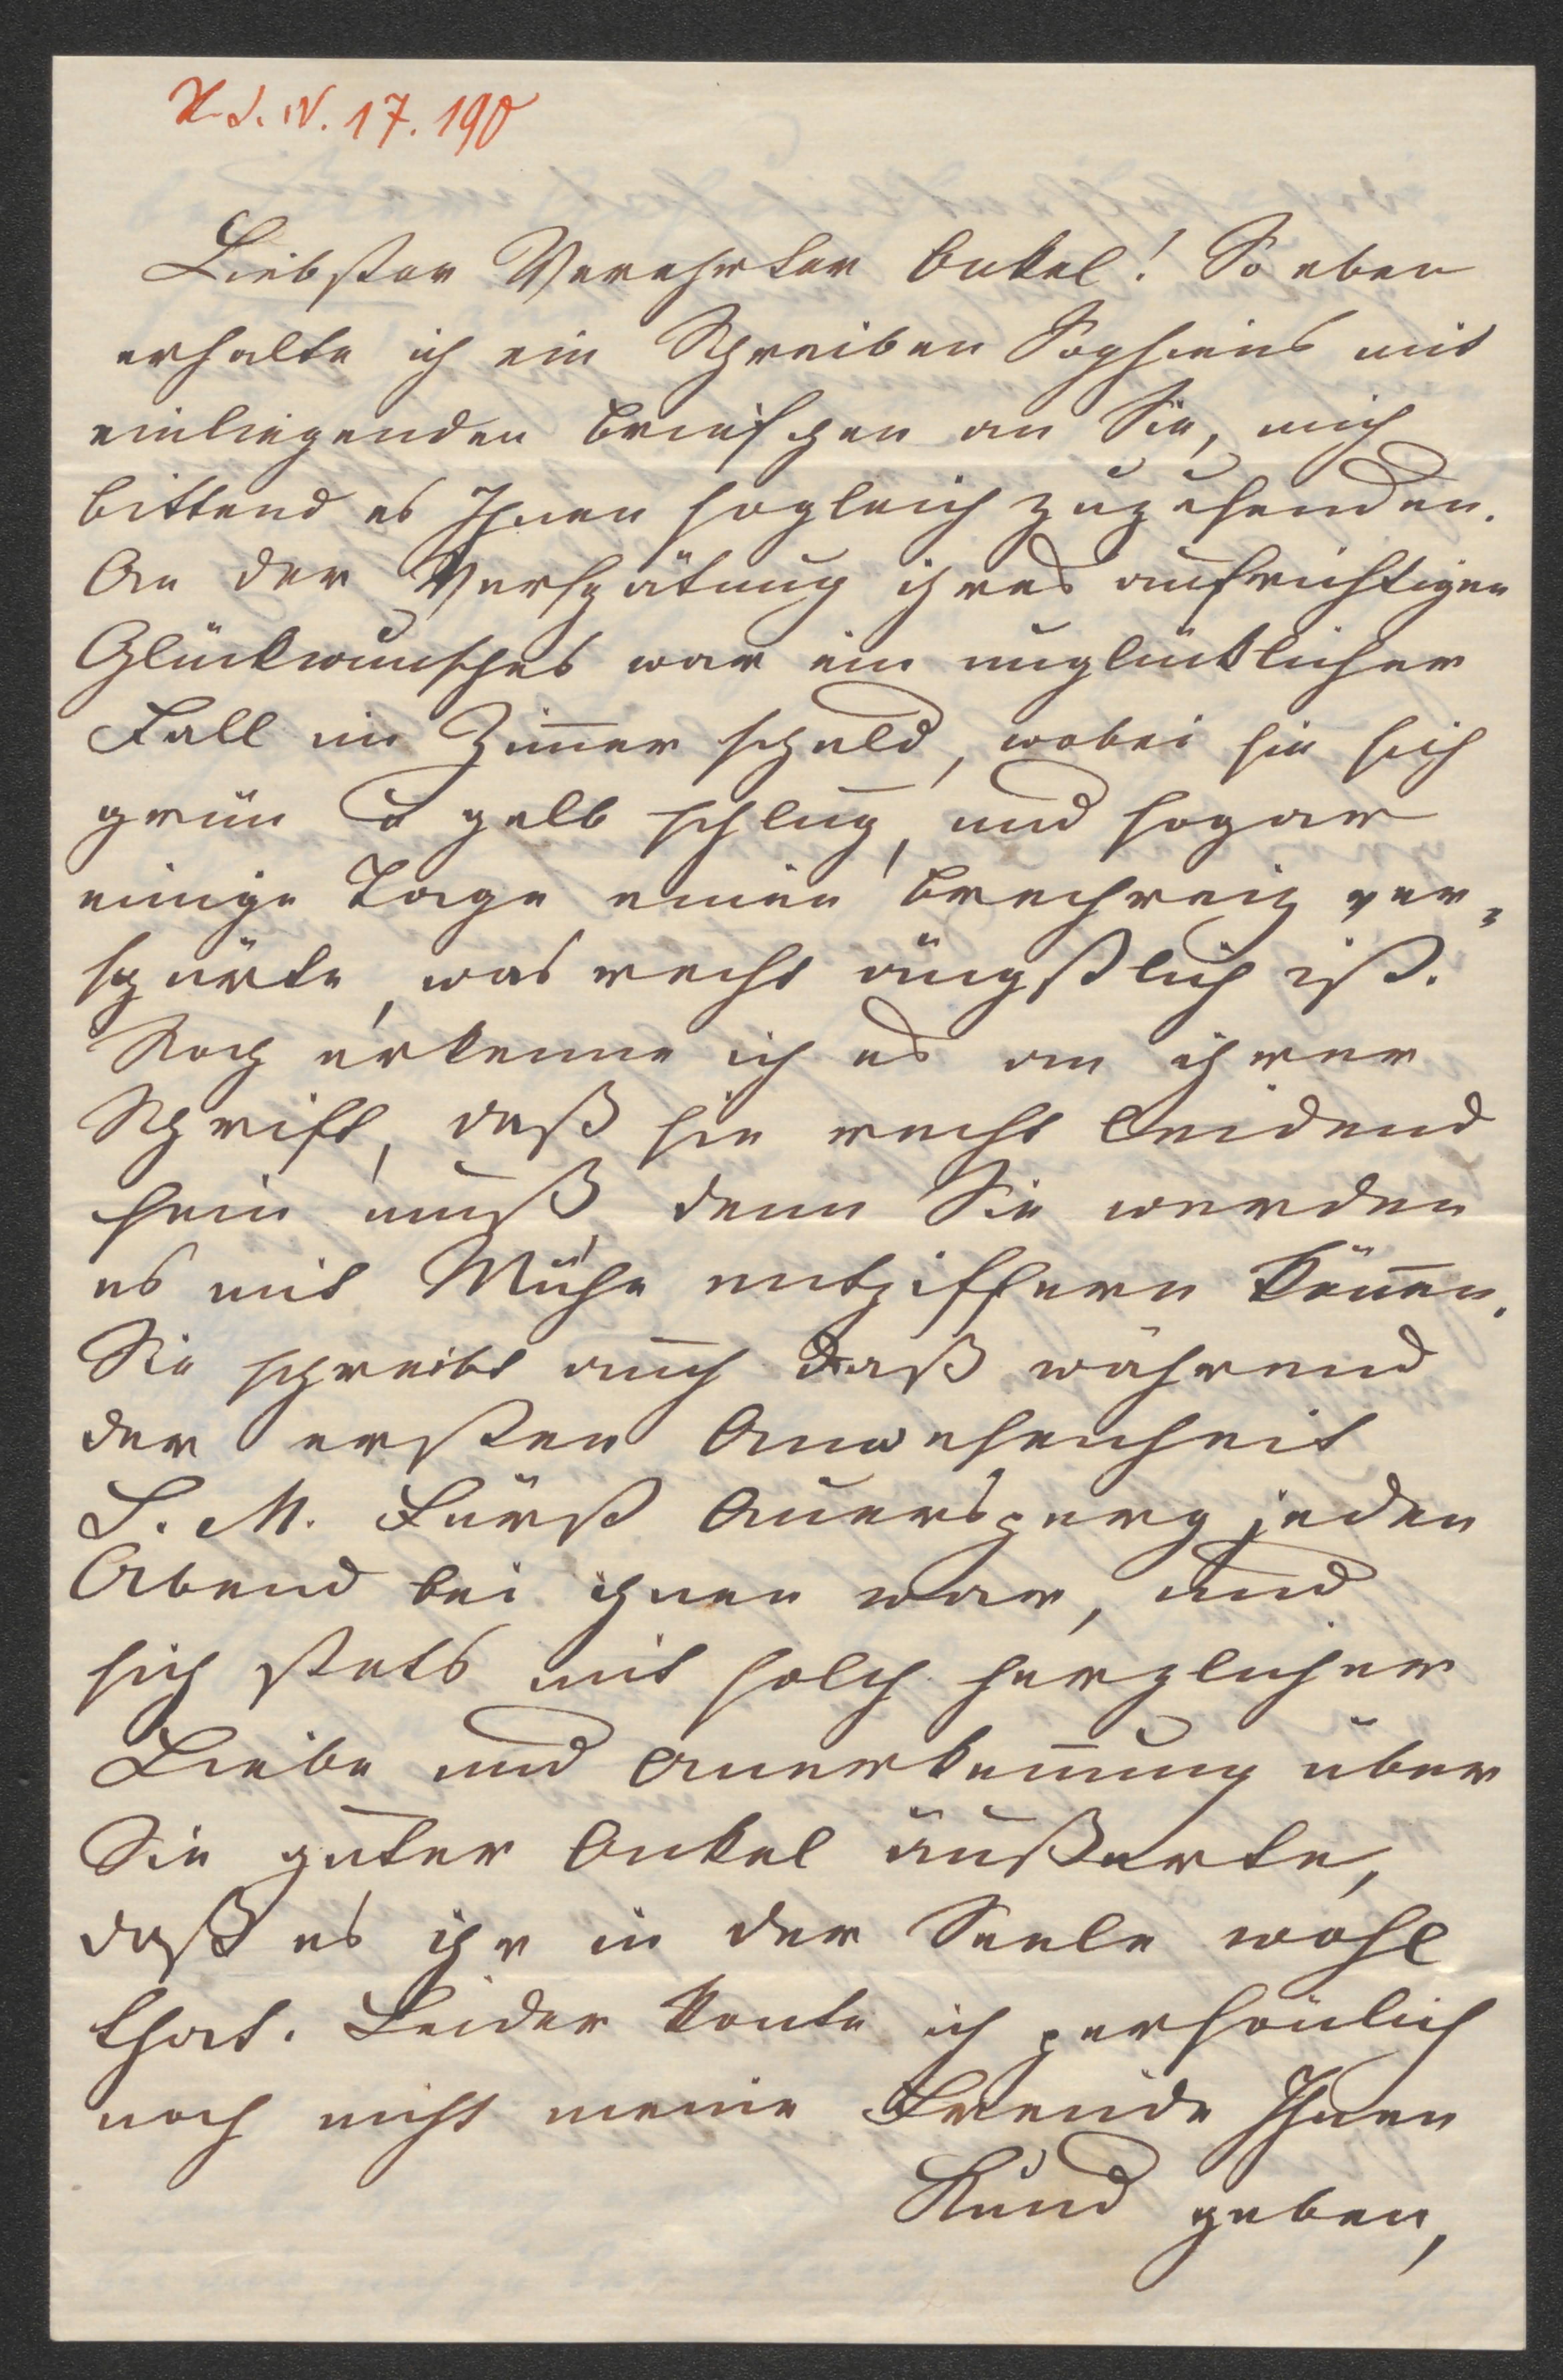 K. J. N. 17. 190
Liebster Verehrter Onkel! So eben
erhalte ich ein Schreiben Sophiens mit
einliegenden Briefchen an Sie, mich
bittend es Ihnen sogleich zuzusenden.
An der Verspätung ihres aufrichtigen
Glückwunsches war ein unglücklicher
Fall im Zim̅er schuld, wobei sie sich
grün u gelb schlug, und sogar
einige Tage einen Brechreiz ver-
spürte, was recht ängstlich ist.
Noch erkenne ich es an ihrer
Schrift, daß sie recht leidend
sein muß, denn Sie werden
es mit Mühe entziffern kön̅en.
Sie schreibt auch daß während
der ersten Anwesenheit
S. M. Fürst Auersperg jeden
Abend bei ihnen war, und
sich stets mit solch herzlicher
Liebe und Anerken̅ung über
Sie guter Onkel äußerte,
daß es ihr in der Seele wohl
that. Leider konte ich persönlich
noch nicht meine Freude Ihnen
Kund geben,